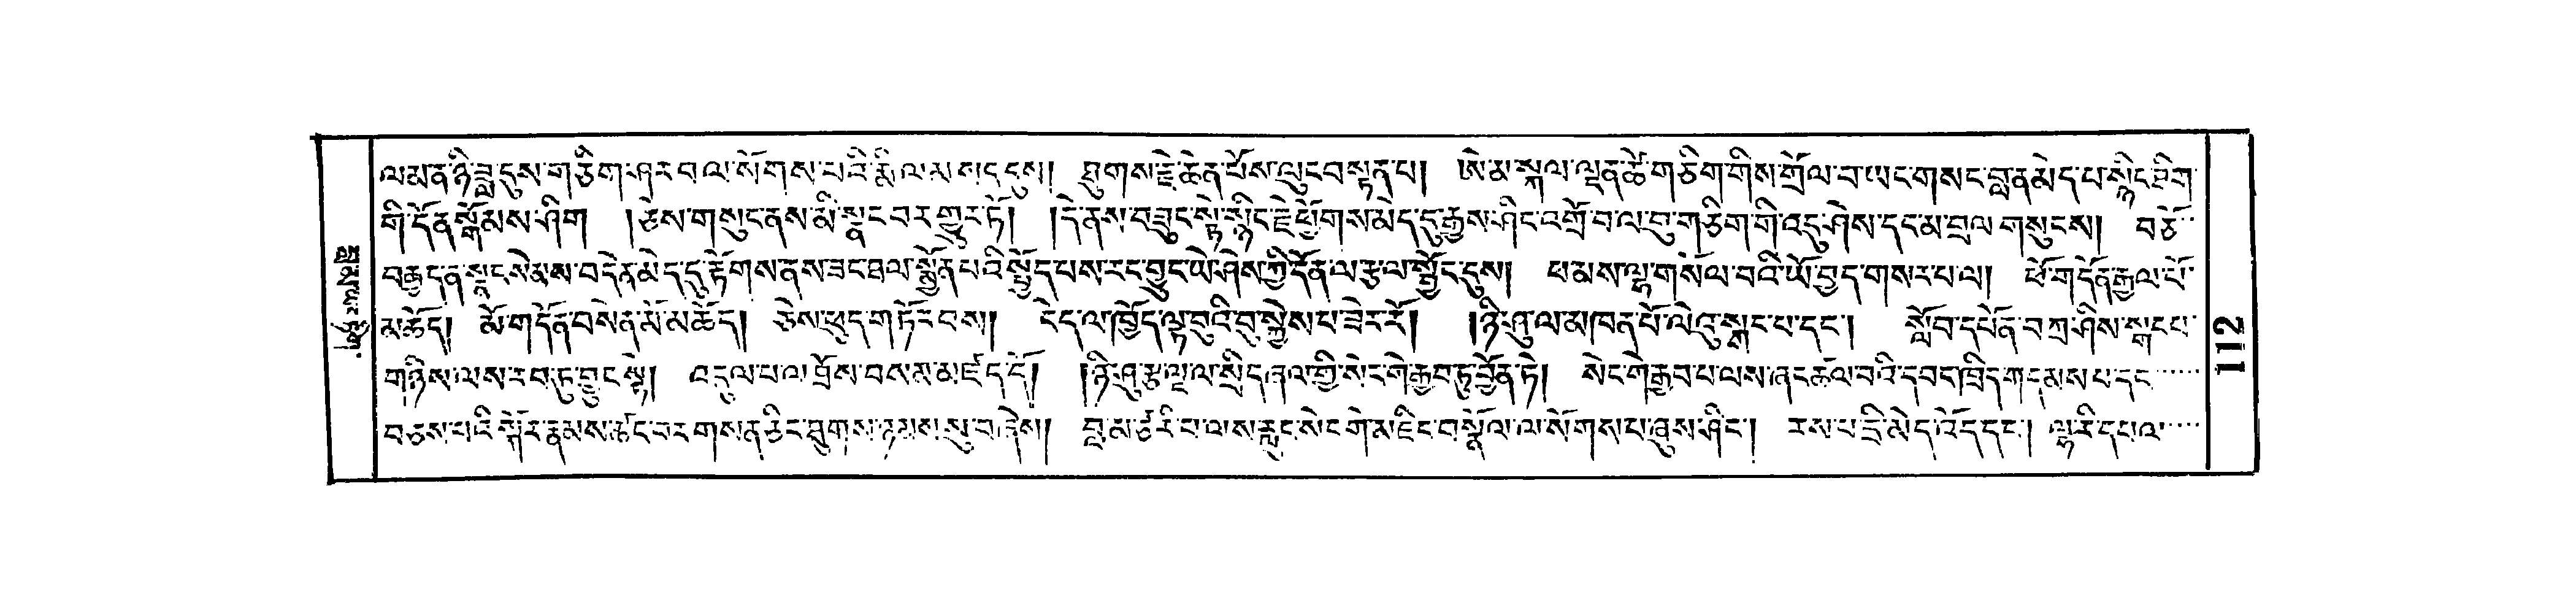 ལམ་ན་ཉི་ཟླ་དུས་གཅིག་ཤར་བ་ལ་སོགས་པའི་རྨི་ལམ་མང་དུས། ཐུགས་རྗེ་ཆེན་པོས་ལུང་བསྟན་པ། ཨེ་མ་སྐལ་ལྡན་ཚེ་གཅིག་གིས་གྲོལ་བ་ཡང་གསང་བླ་ན་མེད་པ་སྙིང་ཐིག་
གི་དོན་སྒོམས་ཤིག །ཅེས་གསུང་ནས་མི་སྣང་བར་གྱུར་ཏོ། །དེ་ནས་བཟུང་སྟེ་སྙིང་རྗེ་ཕྱོགས་མེད་དུ་རྒྱས་ཤིང་འགྲོ་བ་ལ་བུ་གཅིག་གི་འདུ་ཤེས་དང་མ་བྲལ་གསུངས། བཅོ་
བརྒྱད་ན་སྣང་སེམས་བདེན་མེད་དུ་རྟོགས་ནས་ཟང་ཐལ་སྨྱོན་པའི་སྤྱོད་པས་རང་བྱུང་ཡེ་ཤེས་ཀྱི་དོན་ལ་རྩལ་སྦྱོང་དུས། ཕ་མས་ལྷ་གསོལ་བའི་ཡོ་བྱད་གསར་པ་ལ། ཕོ་གདོན་རྒྱལ་པོ་
མ་ཆོད། མོ་གདོན་བསེན་མོ་མ་ཆོད། ཅེས་ཕུད་གཏོར་བས། ངེད་ལ་ཁྱོད་ལྟ་བུའི་བུ་སྐྱེས་པ་ཟེར་རོ། །ཉི་ཤུ་ལ་མཁན་པོ་ལེའུ་སྒང་པ་དང་། སློབ་དཔོན་བཀྲ་ཤིས་སྒང་པ་
གཉིས་ལས་རབ་ཏུ་བྱུང་སྟེ། འདུལ་བ་ལ་གྲོས་བསམ་མཛད་དོ། །ཉི་ཤུ་རྩ་ལྔ་ལ་སྲིད་ཞལ་གྱི་སེང་གེ་རྒྱབ་ཏུ་བྱོན་ཏེ། སེང་གེ་རྒྱབ་པ་ལས་ཞང་རྩལ་བའི་དབང་ཁྲིད་གདམས་པ་དང་
བཅས་པའི་སྐོར་རྣམས་ཚང་བར་གསན་ཅིང་ཐུགས་ཉམས་སུ་བཞེས། བླ་མ་ཙ་རི་བ་ལས་རླུང་སེང་གེ་མཇིང་བསྣོལ་ལ་སོགས་པ་ཞུས་ཤིང་། རས་པ་དྲི་མེད་འོད་དང་། ལྷ་རི་དཔལ་